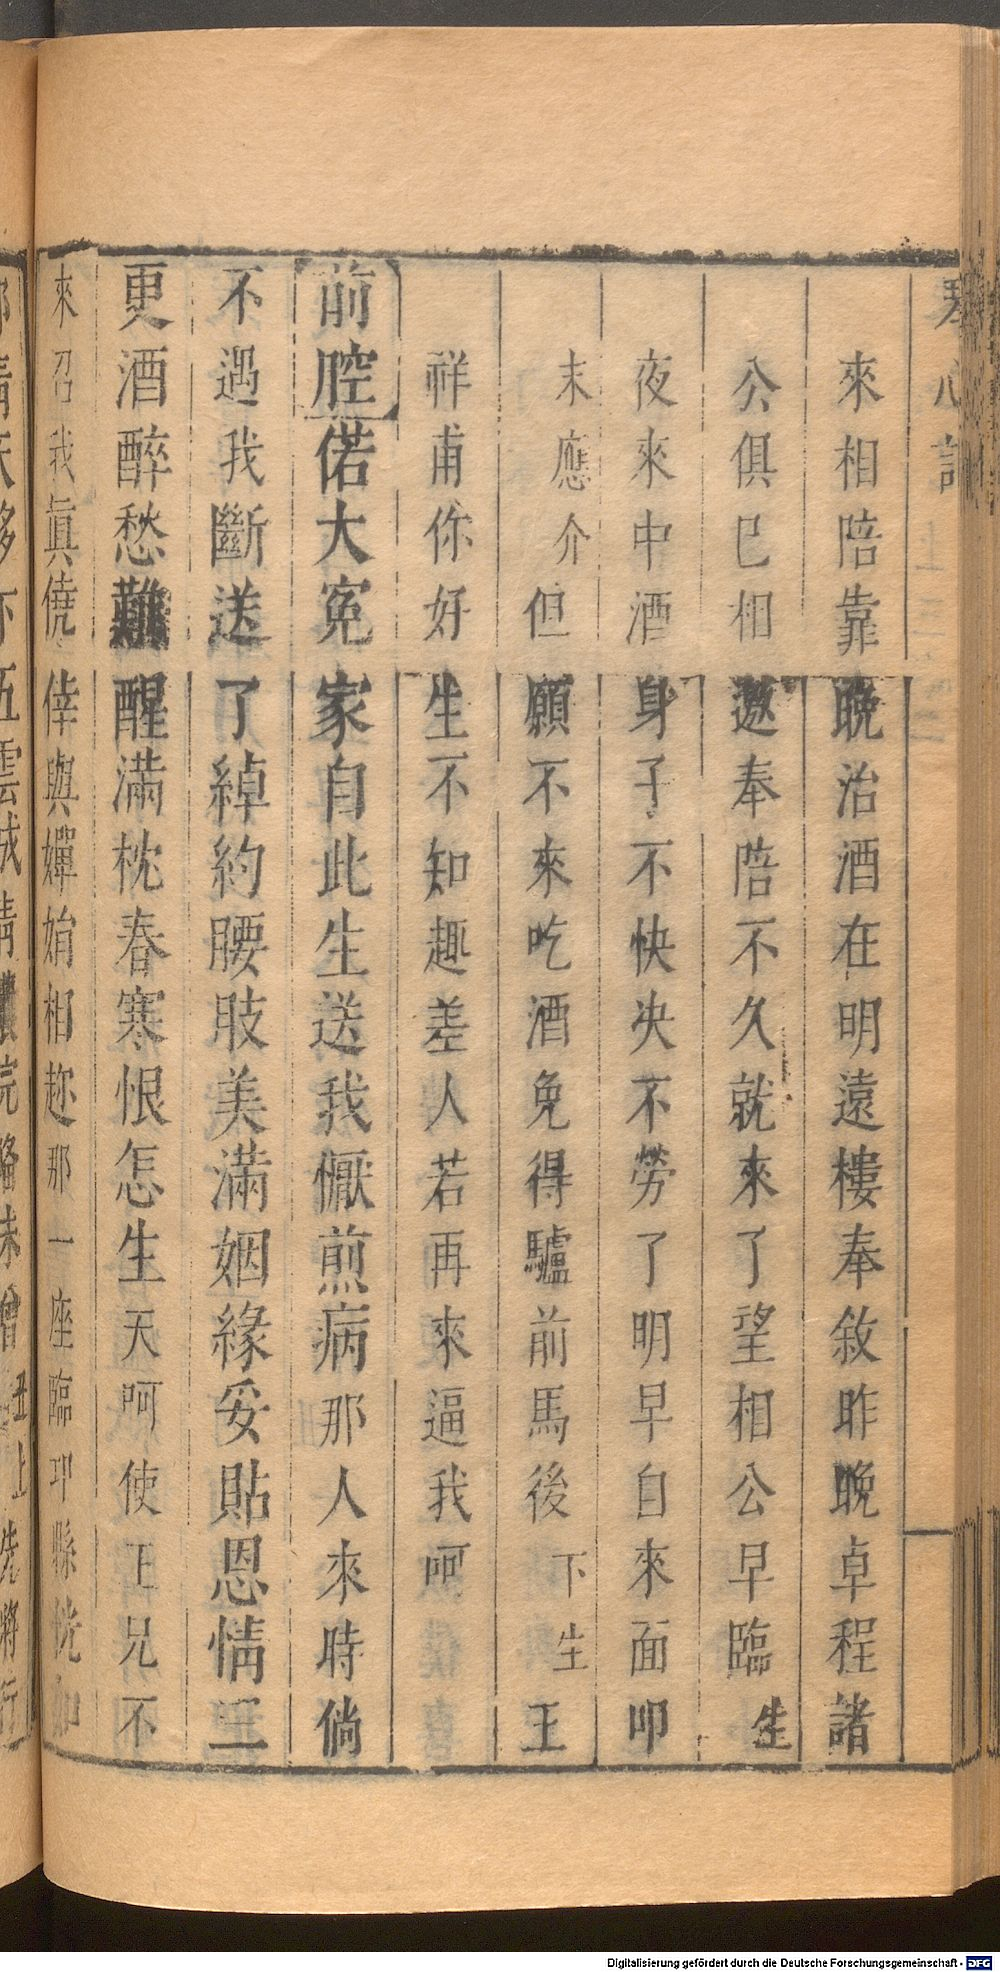 琴心記
來相陪靠晚治酒在明遠樓奉敘昨晚卓程諸
公俱已相邀奉陪不久就來了望相公早臨生
夜來中酒身子不快決不勞了明早自來面叩
末應介但願不來吃酒免得驢前馬後下生王
祥甫你好生不知趣差人若再來逼我呵
前腔偌大寃家自此生送我懨煎病那人來時倘
不遇我斷送了綽約腰肢美滿姻緣妥貼恩情正
更酒醉愁難醒滿枕春寒恨怎生天呵使王兄不
來召我眞僥倖與嬋娟相趂那一座臨邛縣恍如
五雲城
丑上先將行
Digitalisierung gefördert durch die Deutsche Forschungsgemeinschaft - DFG